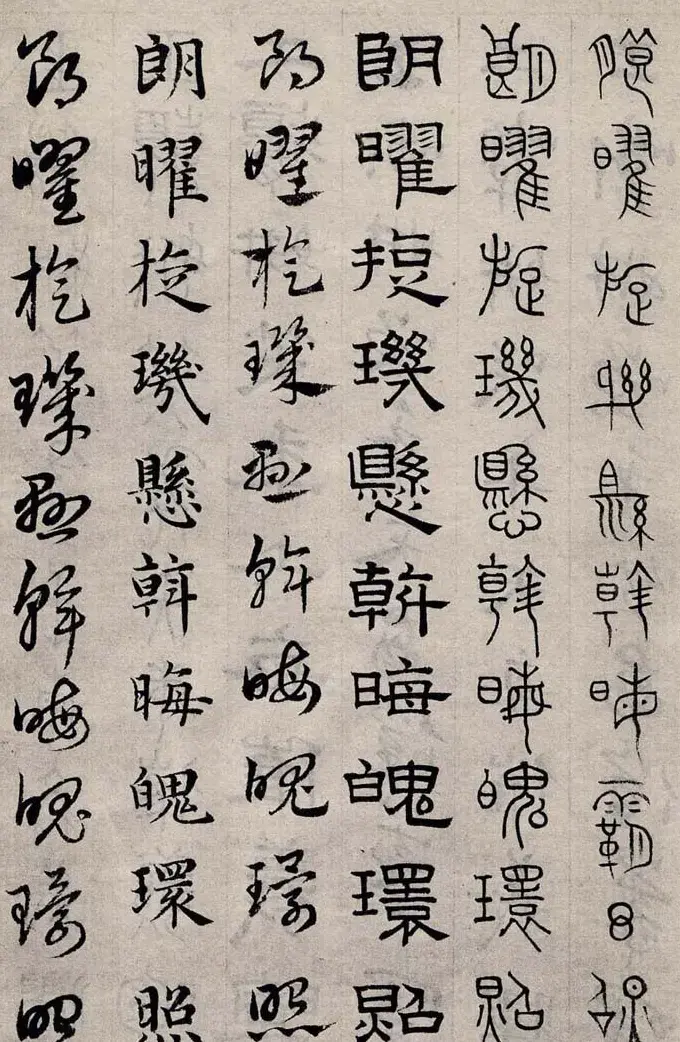 朗曜旋璣縣斡晦霸環照
朗曜旋璣懸斡晦魄環照
朗曜旋璣懸斡晦魄環照
朗曜旋璣懸斡晦魄環照
朗曜旋璣懸斡晦魄環照
朗曜旋璣懸斡晦魄環照